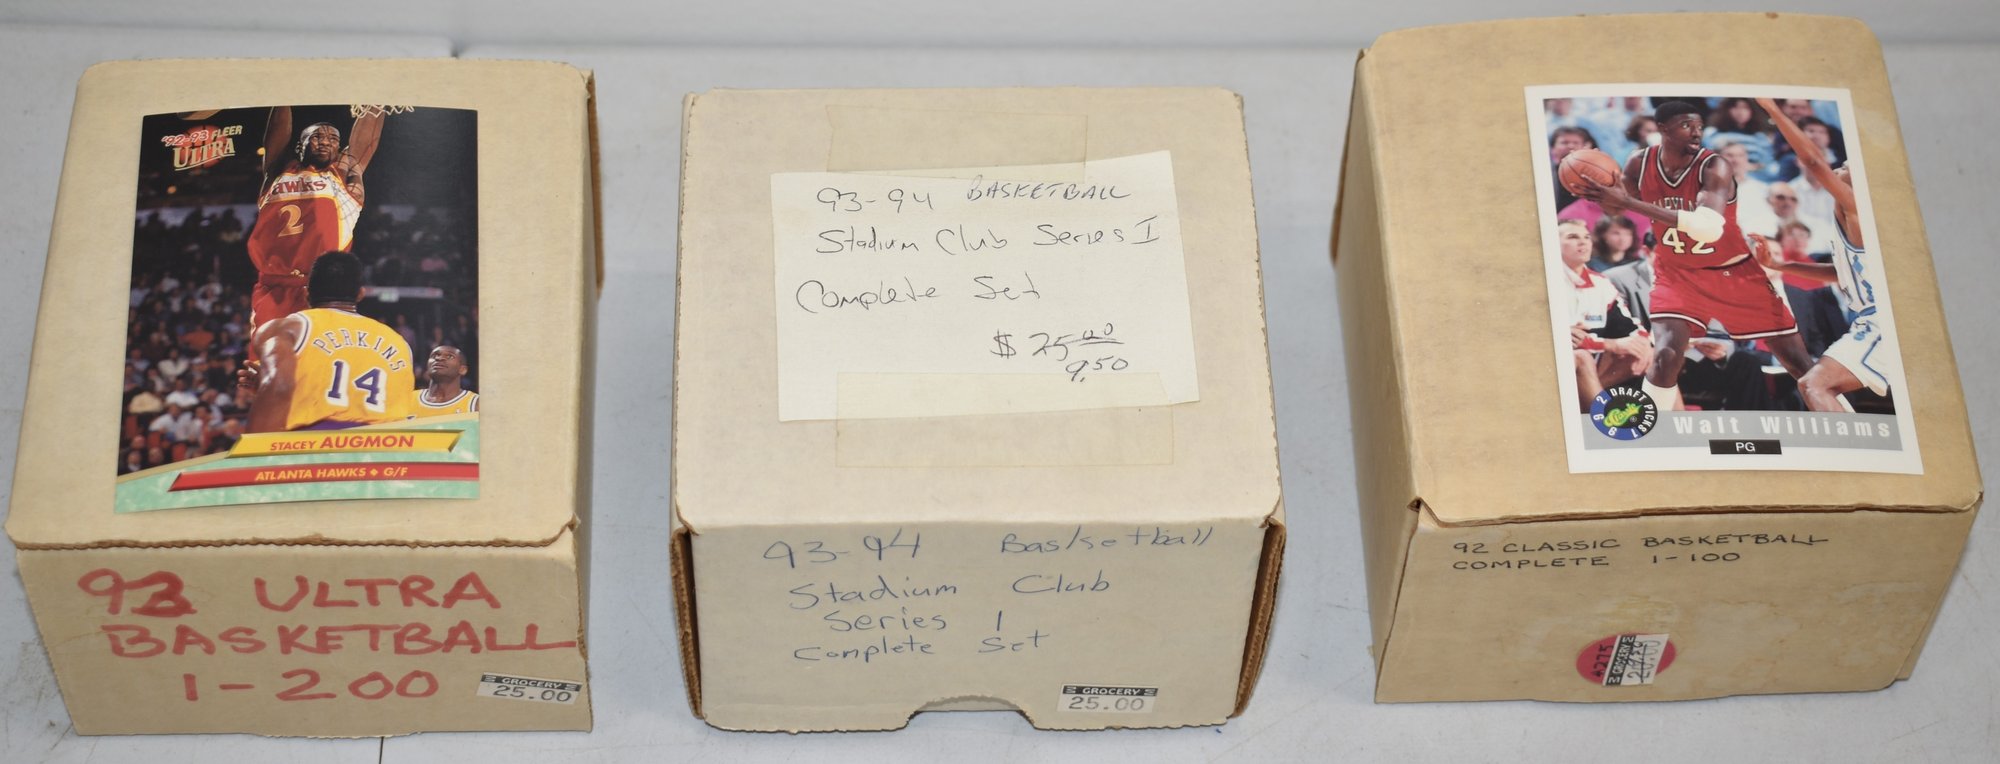 '92-93 FLEER
ULTRA
awks
2
PERKINS
14
STACEY AUGMON
ATLANTA HAWKS ♦ G/F
93 ULTRA
BASKETBALL
1-200
GROCERY
25.00
93-94 BASKETBALL
Stadium Club Series I
Complete Set
$ 25.00
9.50
93-94 Basketball
Stadium Club
Series 1
Complete Set
GROCERY
25.00
42
1992 DRAFT PICKS
Classic
Walt Williams
PG
92 CLASSIC BASKETBALL
COMPLETE 1-100
GROCERY